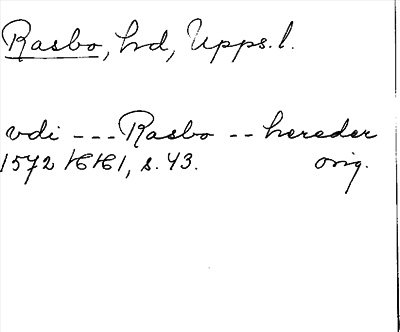 Rasbo, hd, Upps. l.
vdi --- Rasbo -- hereder
1572 KHH1, s. 43. orig.